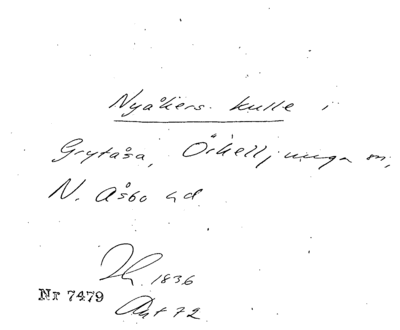 Nyåkers kulle i
Grytåsa, Örkelljunga sn,
N. Åsbo hd
1836
Nr 7479
Avt 72